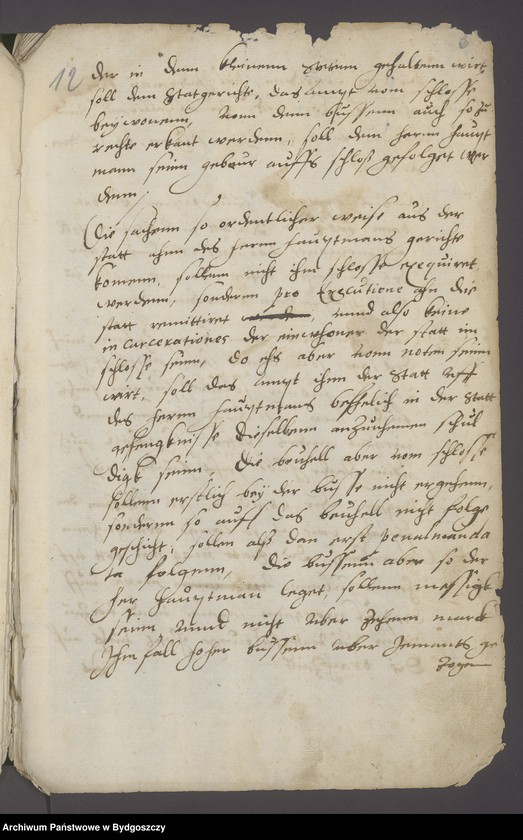 12
der in dem kleinenn gehaltenn wirt,
soll dem Statgerichte, das Ampt vom schlosse
beywonenn, vonn denn bussenn auch so zu
rechte erkant werdenn, soll dem herrn haupt
mann seinn gebuer auffs schloß gefolget wer
denn.
Die sachenn so ordentlicher weise aus der
statt ahnn des herrn hauptmans gerichte
komenn, sollenn nicht ihm schlosse exequiret
werdenn, sonderen pro Executione ahn die
statt remittiret, unnd also keine
incarcerationes der einwhoner der statt im
schlosse seinn, do ehs aber vonn noten seinn
wirt, soll das Ampt ihnn der Statt uff
des herrn hauptmans beffelich in der Statt
gefengknisse dieselbenn anzunehmen schul
digk seinn, Die beuhell aber vom schlosse
sollenn erstlich bey der busse nicht ergehenn,
sonderen so auffs das beuhell nicht folge
geschicht, sollen alß dan erst penalmanda
ta folgenn, Die bussenn aber so der
her hauptman leget, sollenn messigk
seinn unnd nicht uber zehenn marck
Ihm fall hoher bussenn uber Jemants ge
zogen
Archiwum Państwowe w Bydgoszczy